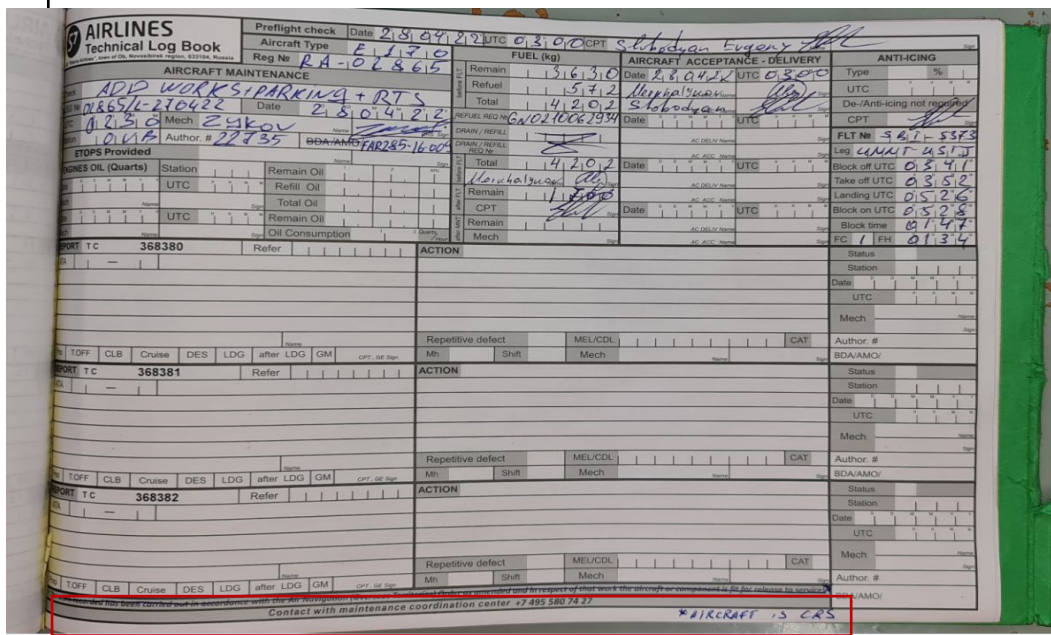 S7 AIRLINES
Technical Log Book
town of Ob, Novosibirsk region, 633104, Russia
Preflight check Date 28 04 22 UTC 03 00 CPT Slobodyan Evgeny
Aircraft Type E170
Reg № RA-02865
AIRCRAFT MAINTENANCE
ADD WORKS+PARKING + RTS
02865/L-270422 Date 28 04 22
0230 Mech Zykov
OVB Author. # 22735 BDA/AMO/ FAR285-16-009
ETOPS Provided
ENGINES OIL (Quarts) Station Remain Oil
UTC Refill Oil
Total Oil
UTC Remain Oil
Oil Consumption
FUEL (kg)
before FLT
Remain 3630
Refuel 572
Total 4202
REFUEL REQ № GN0210062934
DRAIN / REFILL
DRAIN / REFILL REQ №
Total 4202
Remain 1700
CPT
after FLT
Remain
Mech
after MNT
AIRCRAFT ACCEPTANCE - DELIVERY
Date 28 04 22 UTC 03 00
Slobodyan
Date UTC
AC DELIV Name Sign
AC ACC Name Sign
Date UTC
AC DELIV Name Sign
AC ACC Name Sign
Date UTC
AC DELIV Name Sign
AC ACC Name Sign
ANTI-ICING
Type %
UTC
De-/Anti-icing not required
CPT
FLT № SBI-5373
Leg UNNT-USTJ
Block off UTC 03 41
Take off UTC 03 52
Landing UTC 05 26
Block on UTC 05 28
Block time 01 47
FC 1 FH 01 34
REPORT TC 368380 Refer
ATA —
ACTION
Status
Station
Date
UTC
Mech Name
Sign
Repetitive defect MEL/CDL CAT Author. #
T.OFF CLB Cruise DES LDG after LDG GM CPT, GE Sign Mh Shift Mech Name Sign BDA/AMO/
REPORT TC 368381 Refer
ATA —
ACTION
Status
Station
Date
UTC
Mech Name
Sign
Repetitive defect MEL/CDL CAT Author. #
T.OFF CLB Cruise DES LDG after LDG GM CPT, GE Sign Mh Shift Mech Name Sign BDA/AMO/
REPORT TC 368382 Refer
ATA —
ACTION
Status
Station
Date
UTC
Mech Name
Sign
Repetitive defect MEL/CDL CAT
T.OFF CLB Cruise DES LDG after LDG GM CPT, GE Sign Mh Shift Mech Name Sign Author. #
recorded has been carried out in accordance with the Air Navigation (Overseas Territories) Order as amended and in respect of that work the aircraft or component is fit for release to service BDA/AMO/
Contact with maintenance coordination center +7 495 580 74 27
*AIRCRAFT IS CRS